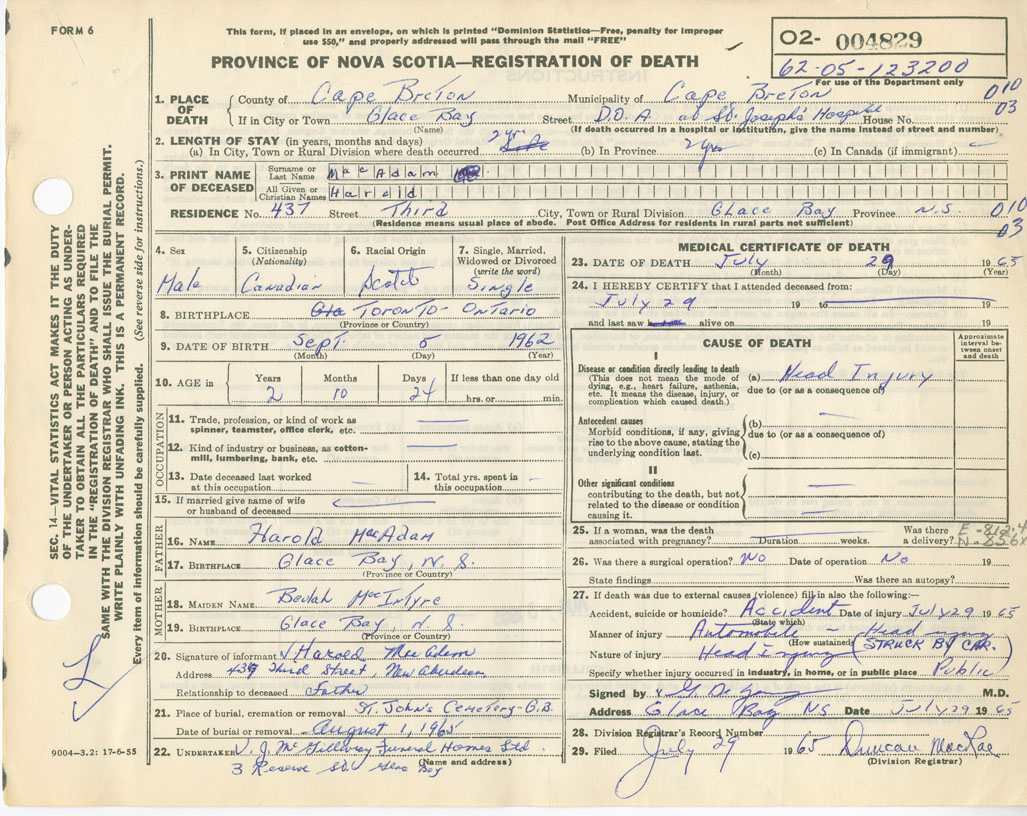 FORM 6
This form, if placed in an envelope, on which is printed "Dominion Statistics—Free, penalty for improper
use $50," and properly addressed will pass through the mail "FREE"
PROVINCE OF NOVA SCOTIA—REGISTRATION OF DEATH
02- 004829
62-05-123200
For use of the Department only
010
03
SEC. 14—VITAL STATISTICS ACT MAKES IT THE DUTY
OF THE UNDERTAKER OR PERSON ACTING AS UNDER-
TAKER TO OBTAIN ALL THE PARTICULARS REQUIRED
IN THE "REGISTRATION OF DEATH" AND TO FILE THE
SAME WITH THE DIVISION REGISTRAR WHO SHALL ISSUE THE BURIAL PERMIT.
WRITE PLAINLY WITH UNFADING INK. THIS IS A PERMANENT RECORD.
Every item of information should be carefully supplied. (See reverse side for instructions.)
1. PLACE OF DEATH
County of Cape Breton Municipality of Cape Breton
If in City or Town Glace Bay Street D.O.A at St. Joseph's Hospital House No.
(Name) (If death occurred in a hospital or institution, give the name instead of street and number)
2. LENGTH OF STAY (in years, months and days)
(a) In City, Town or Rural Division where death occurred 2 yrs (b) In Province 2 yrs (c) In Canada (if immigrant)
3. PRINT NAME OF DECEASED
Surname or Last Name MacAdam
All Given or Christian Names Harold
RESIDENCE No. 437 Street Third City, Town or Rural Division Glace Bay Province N.S. 010
03
(Residence means usual place of abode. Post Office Address for residents in rural parts not sufficient)
4. Sex
Male
5. Citizenship (Nationality)
Canadian
6. Racial Origin
Scotch
7. Single, Married, Widowed or Divorced (write the word)
Single
8. BIRTHPLACE Toronto- Ontario
(Province or Country)
9. DATE OF BIRTH Sept. 5 1962
(Month) (Day) (Year)
10. AGE in
Years Months Days If less than one day old
2 10 24 hrs. or min.
OCCUPATION
11. Trade, profession, or kind of work as
spinner, teamster, office clerk, etc.
12. Kind of industry or business, as cotton-
mill, lumbering, bank, etc.
13. Date deceased last worked
at this occupation
14. Total yrs. spent in
this occupation
15. If married give name of wife
or husband of deceased
FATHER
16. NAME Harold MacAdam
17. BIRTHPLACE Glace Bay, N.S.
(Province or Country)
MOTHER
18. MAIDEN NAME Beulah MacIntyre
19. BIRTHPLACE Glace Bay, N.S.
(Province or Country)
20. Signature of informant Harold MacAdam
Address 437 Third Street, New Aberdeen
Relationship to deceased Father
21. Place of burial, cremation or removal St. John's Cemetery-G.B.
Date of burial or removal August 1, 1965
22. UNDERTAKER V. J. McGillivray Funeral Homes Ltd
3 Reserve St. Glace Bay
(Name and address)
9004-3.2: 17-6-55
MEDICAL CERTIFICATE OF DEATH
23. DATE OF DEATH July 29 1965
(Month) (Day) (Year)
24. I HEREBY CERTIFY that I attended deceased from:
July 29 19 to 19
and last saw alive on 19
CAUSE OF DEATH
Approximate interval between onset and death
I
Disease or condition directly leading to death
(This does not mean the mode of
dying, e.g., heart failure, asthenia,
etc. It means the disease, injury, or
complication which caused death.)
(a) Head Injury
due to (or as a consequence of)
Antecedent causes
Morbid conditions, if any, giving
rise to the above cause, stating the
underlying condition last.
(b)
due to (or as a consequence of)
(c)
II
Other significant conditions
contributing to the death, but not
related to the disease or condition
causing it.
25. If a woman, was the death Was there
associated with pregnancy? Duration weeks. a delivery?
E-812.4
26. Was there a surgical operation? No Date of operation No 19
State findings Was there an autopsy?
27. If death was due to external causes (violence) fill in also the following:—
Accident, suicide or homicide? Accident Date of injury July 29 1965
(State which)
Manner of injury Automobile - Head injury
(How sustained)
(STRUCK BY CAR.)
Nature of injury Head Injury
Specify whether injury occurred in industry, in home, or in public place Public
Signed by M.D.
Address Glace Bay NS Date July 29 1965
28. Division Registrar's Record Number
29. Filed July 29 1965 Duncan MacRae
(Division Registrar)